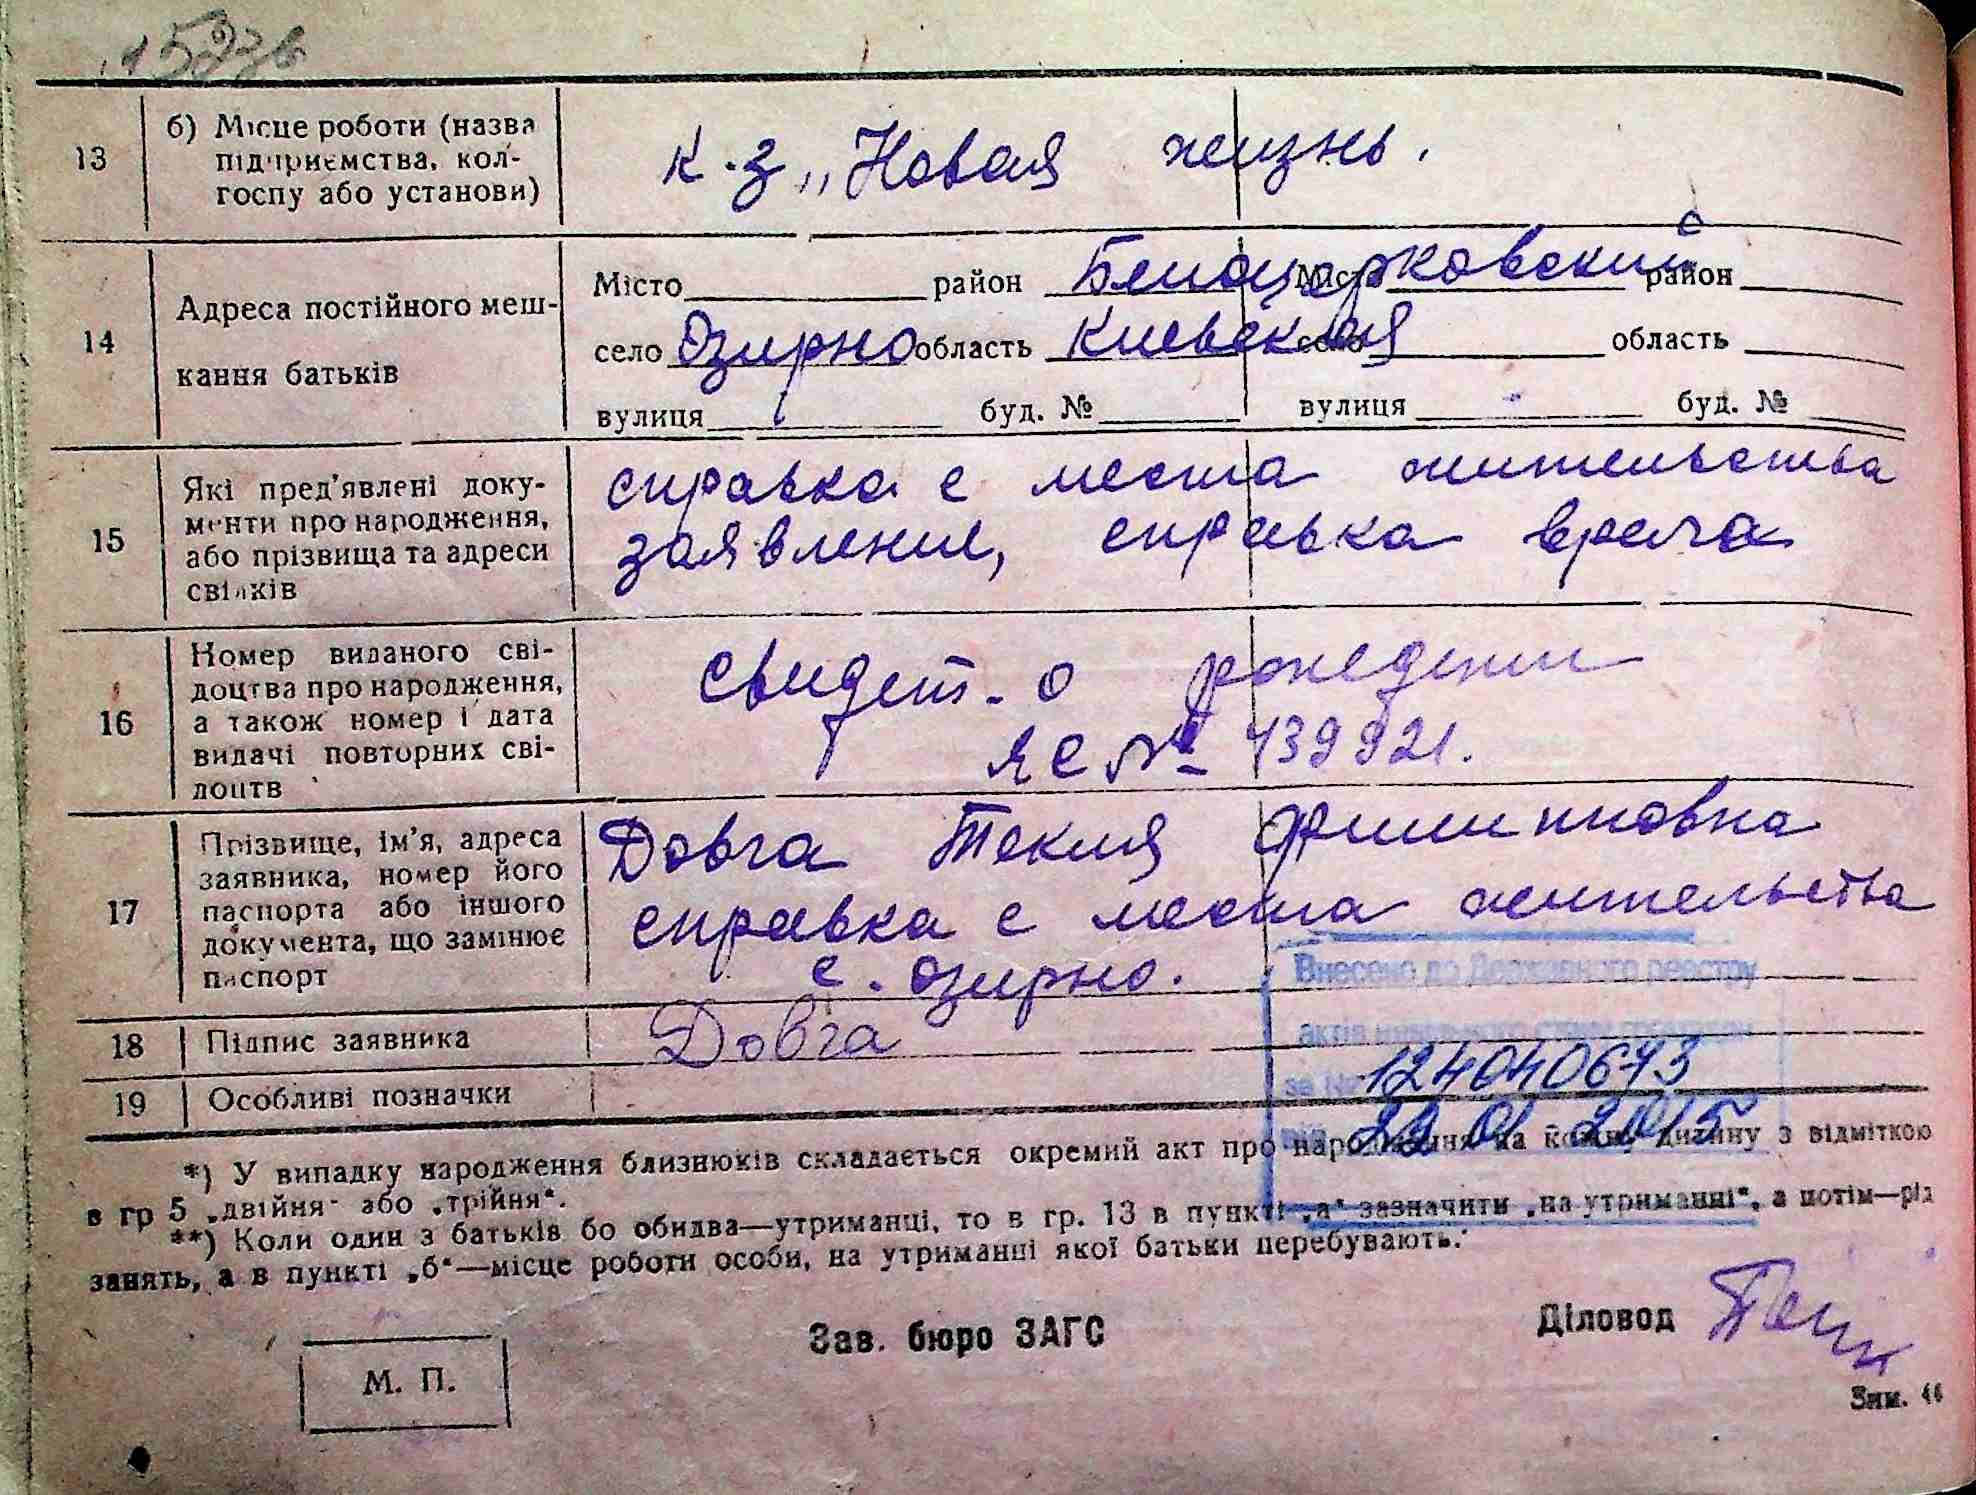 13
б) Місце роботи (назва
підприємства, кол-
госпу або установи)
к-з „Новая жизнь.
14
Адреса постійного меш-
кання батьків
Місто район Белоцерковский Місто район
село Озирно область Киевская село область
вулиця буд. № вулиця буд. №
15
Які пред'явлені доку-
менти про народження,
або прізвища та адреси
свідків
справка с места жительства
заявление, справка врача
16
Номер виданого сві-
доцтва про народження,
а також номер і дата
видачі повторних сві-
доцтв
свидет-о рождении
ЯС № 439921.
17
Прізвище, ім'я, адреса
заявника, номер його
паспорта або іншого
документа, що замінює
паспорт
Довга Текля Филипповна
справка с места жительства
с. Озирно.
18
Підпис заявника
Довга
19
Особливі позначки
Внесено до Державного реєстру
актів цивільного стану громадян
за № 124040673
від 29 01 2015
*) У випадку народження близнюків складається окремий акт про народження на кожну дитину з відміткою
в гр 5 „двійня" або „трійня".
**) Коли один з батьків бо обидва—утриманці, то в гр. 13 в пункті „а" зазначити „на утриманні", а потім—рід
занять, а в пункті „б"—місце роботи особи, на утриманні якої батьки перебувають.
М. П.
Зав. бюро ЗАГС
Діловод
Зам. 44